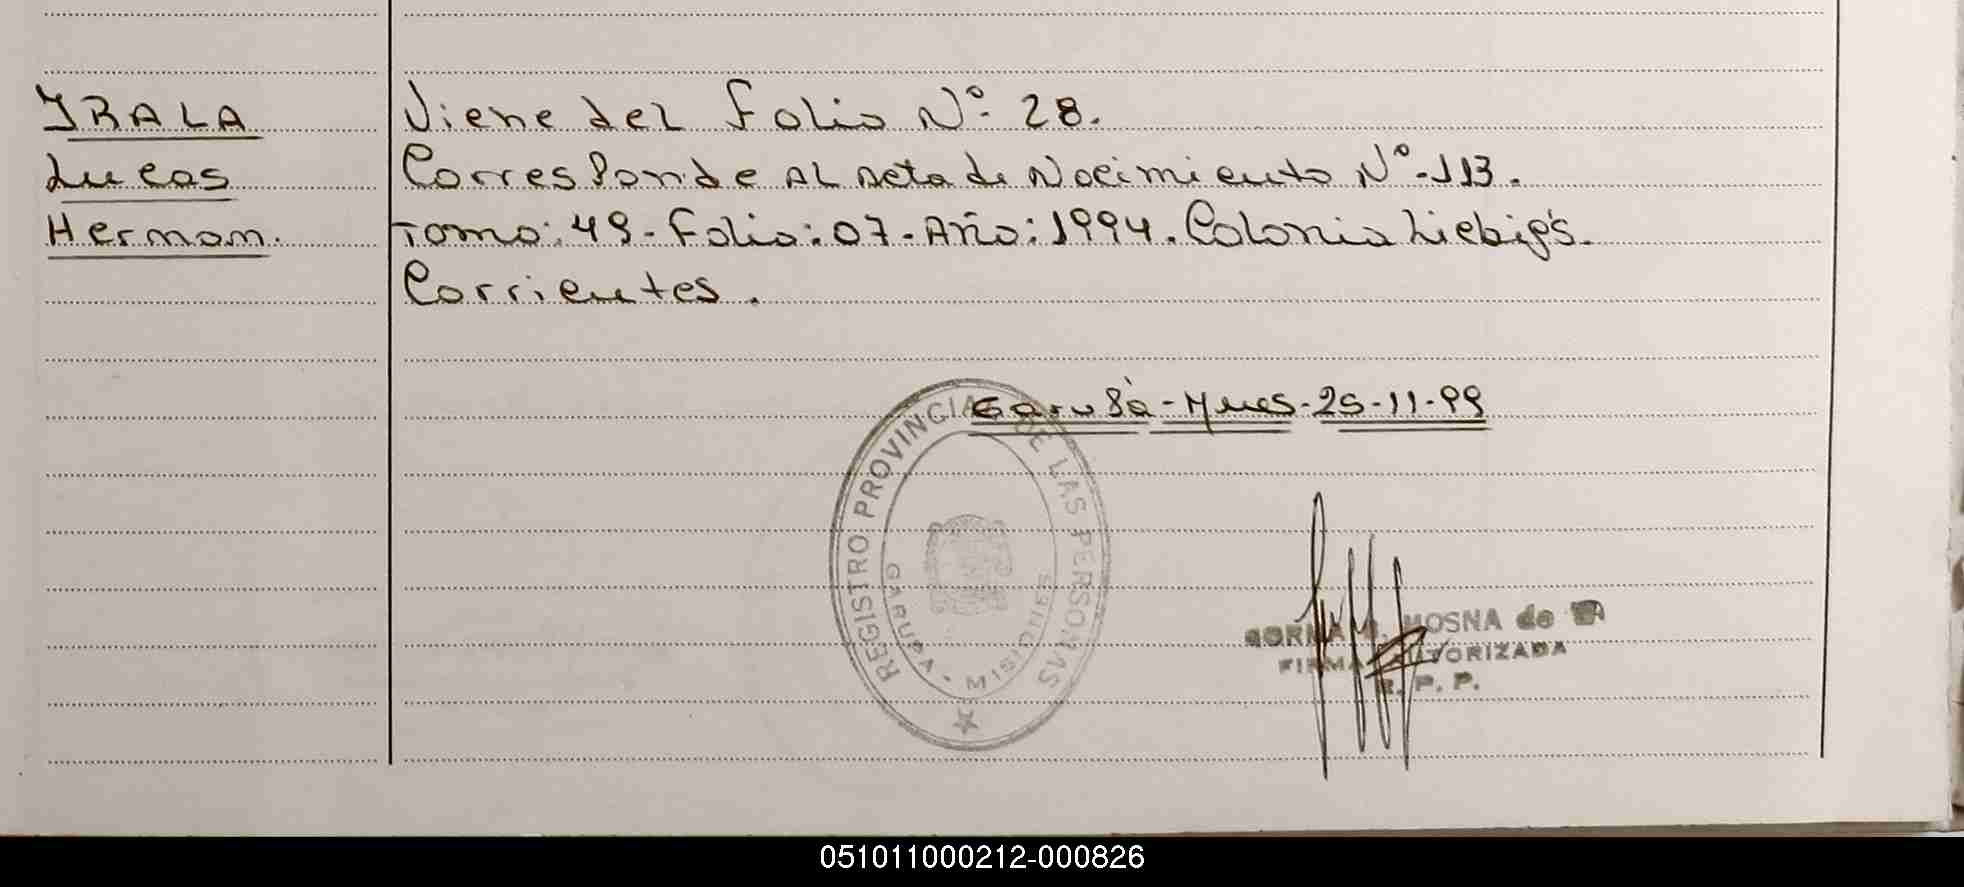 IRALA
Lucas
Hernan.
Viene del Folio Nº 28.
Corresponde al acta de Nacimiento Nº-113.
Tomo: 49-Folio: 07-Año: 1994. Colonia Liebig's.
Corrientes.
Garupá-Mnes-25-11-99
REGISTRO PROVINCIAL DE LAS PERSONAS
GARUPA - MISIONES
MOSNA de
FIRMA AUTORIZADA
R. P. P.
051011000212-000826